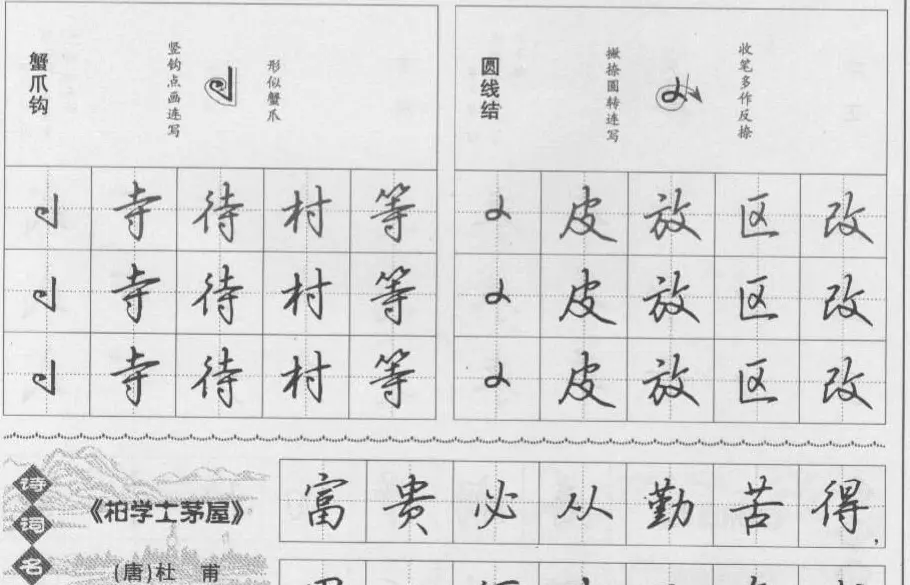 蟹爪钩
竖钩点画连写
形似蟹爪
寺待村等
寺待村等
寺待村等
圆线结
撇捺圆转连写
收笔多作反捺
皮放区改
皮放区改
皮放区改
诗词名
《柏学士茅屋》
(唐)杜 甫
富贵必从勤苦得,